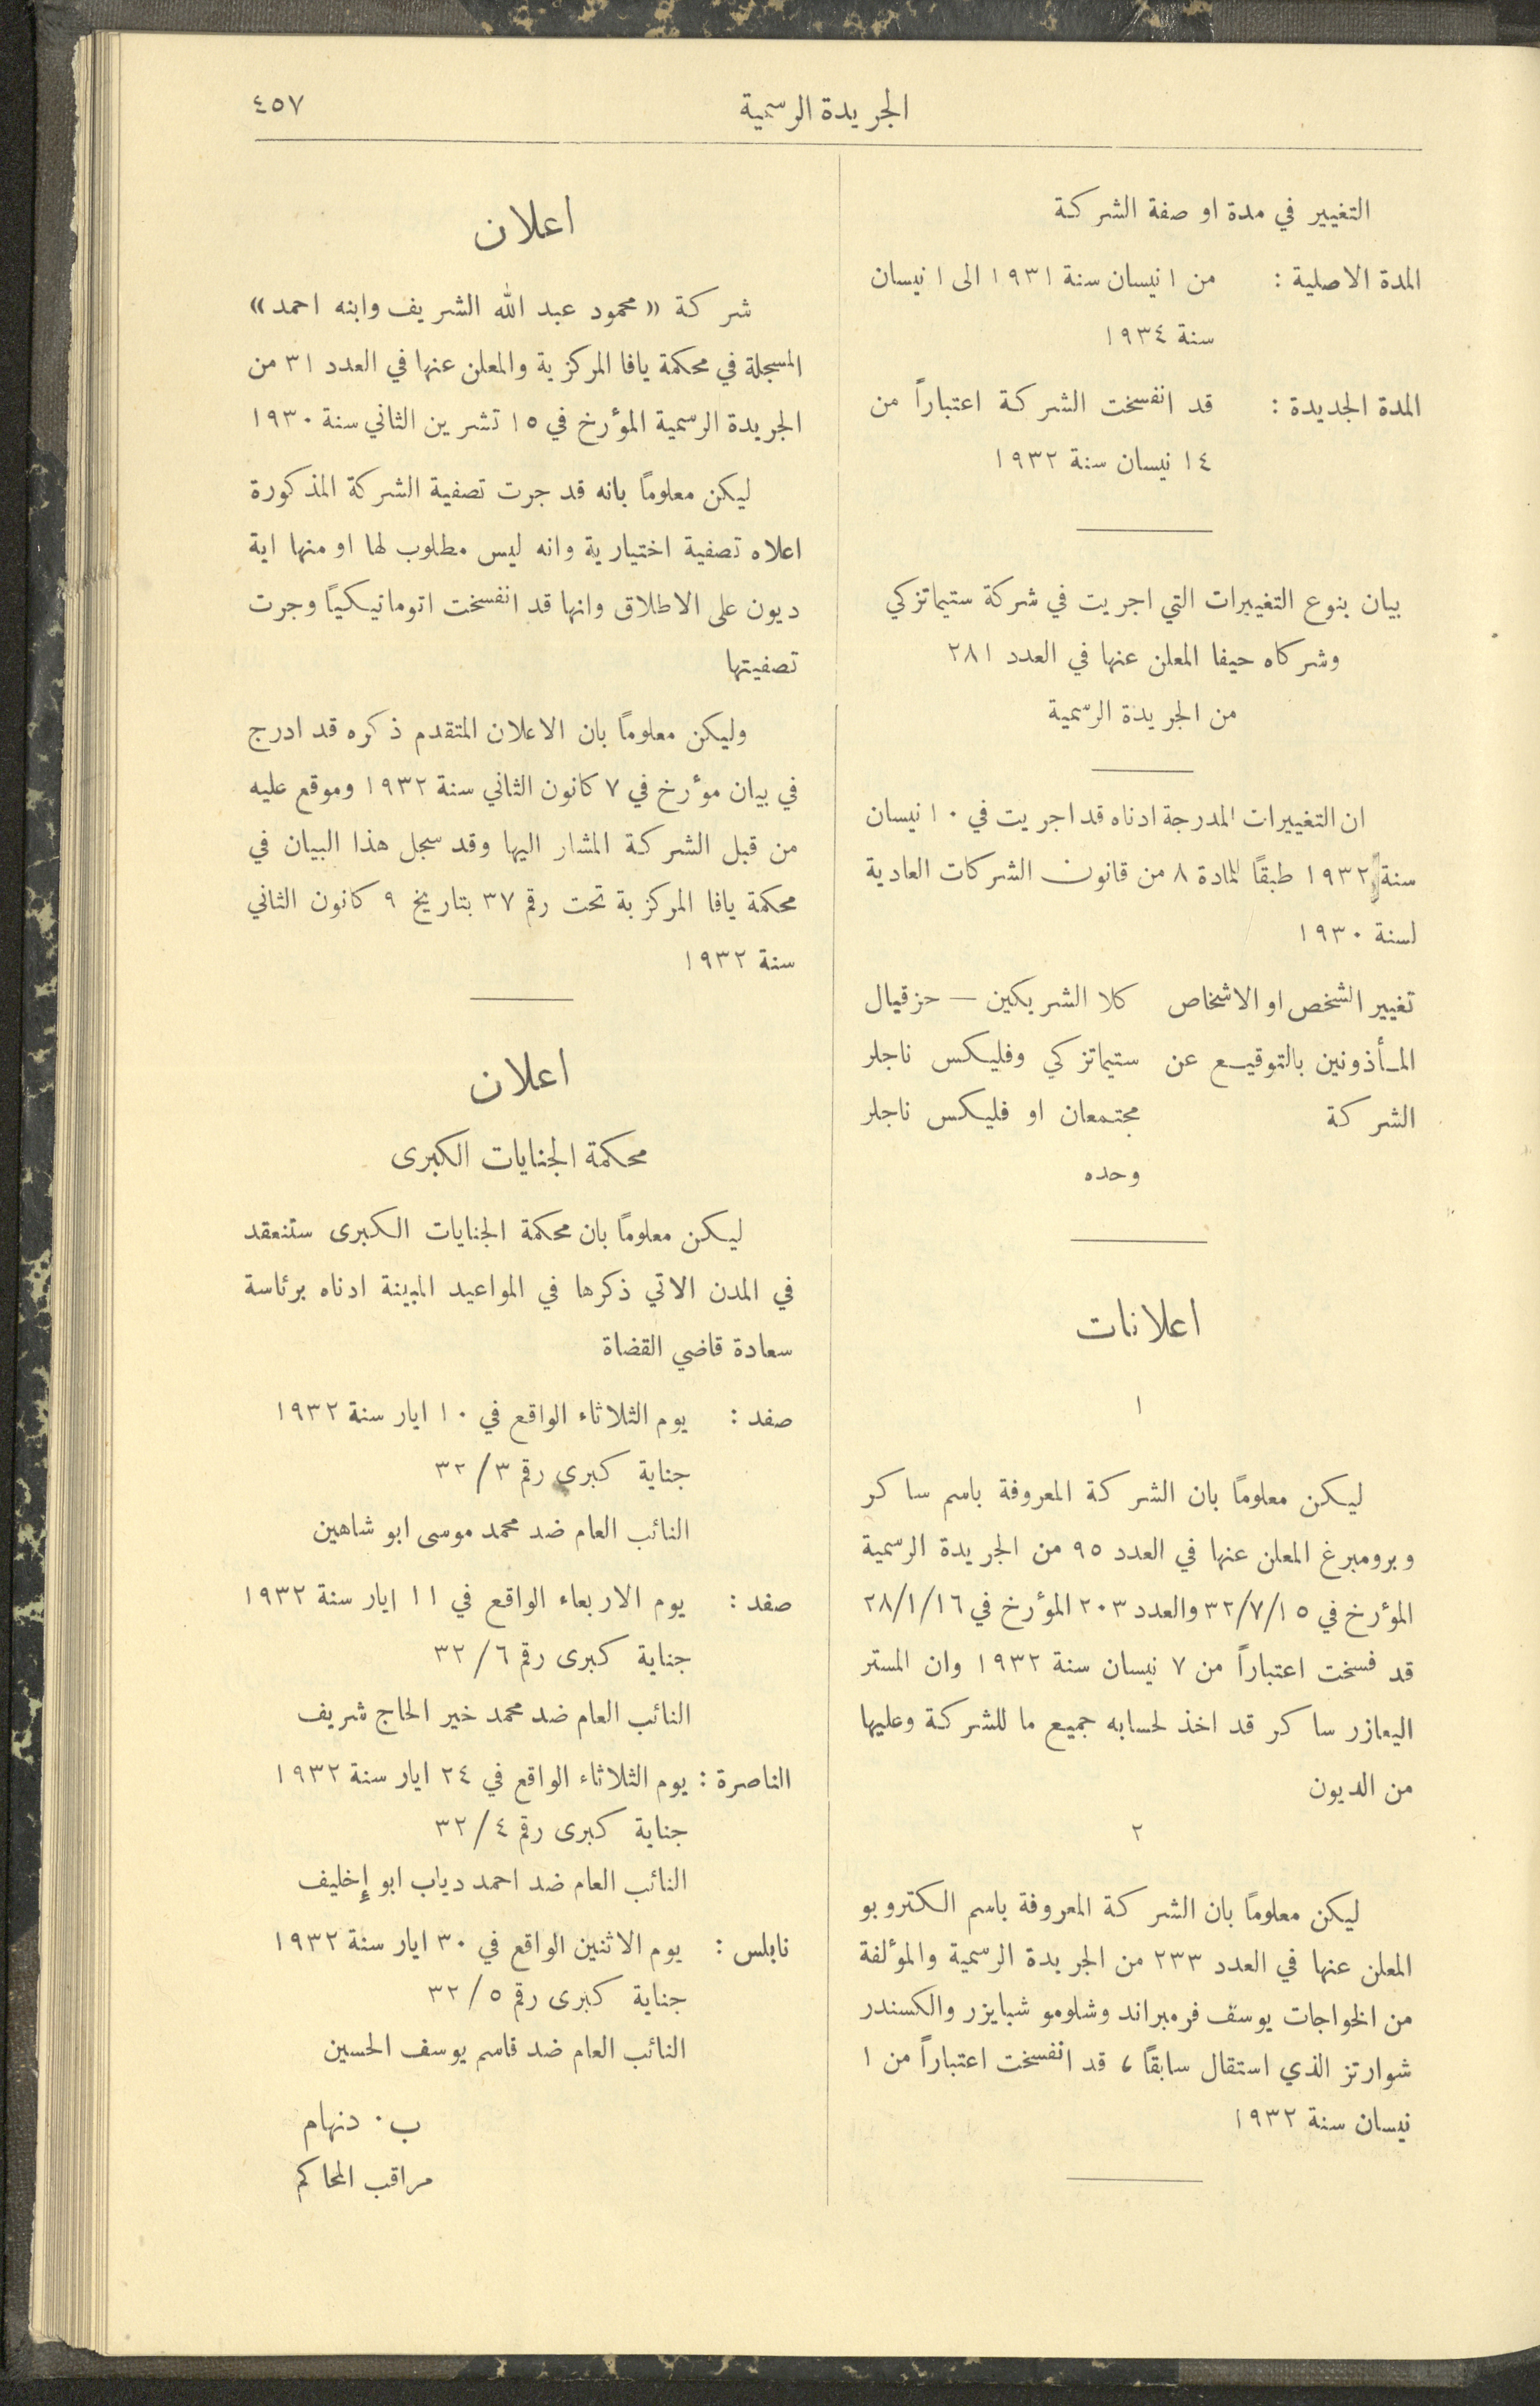 الجريدة الرسمية
٤٥٧
التغيير في مدة او صفة الشركة
المدة الاصلية : من ١ نيسان سنة ١٩٣١ الى ١ نيسان
سنة ١٩٣٤
المدة الجديدة : قد انفسخت الشركة اعتباراً من
١٤ نيسان سنة ١٩٣٢
بيان بنوع التغييرات التي اجريت في شركة ستيماتزكي
وشركاه حيفا المعلن عنها في العدد ٢٨١
من الجريدة الرسمية
ان التغييرات المدرجة ادناه قد اجريت في ١٠ نيسان
سنة ١٩٣٢ طبقاً للمادة ٨ من قانون الشركات العادية
لسنة ١٩٣٠
تغيير الشخص او الاشخاص كلا الشريكين — حزقيال
المأذونين بالتوقيع عن ستيماتزكي وفليكس ناجلر
الشركة مجتمعان او فليكس ناجلر
وحده
اعلانات
١
ليكن معلوماً بان الشركة المعروفة باسم ساكر
وبرومبرغ المعلن عنها في العدد ٩٥ من الجريدة الرسمية
المؤرخ في ٣٢/٧/١٥ والعدد ٢٠٣ المؤرخ في ٢٨/١/١٦
قد فسخت اعتباراً من ٧ نيسان سنة ١٩٣٢ وان المستر
اليعازر ساكر قد اخذ لحسابه جميع ما للشركة وعليها
من الديون
٢
ليكن معلوماً بان الشركة المعروفة باسم الكتروبو
المعلن عنها في العدد ٢٣٣ من الجريدة الرسمية والمؤلفة
من الخواجات يوسف فرمبراند وشلومو شبايزر والكسندر
شوارتز الذي استقال سابقاً ، قد انفسخت اعتباراً من ١
نيسان سنة ١٩٣٢
اعلان
شركة «محمود عبد الله الشريف وابنه احمد»
المسجلة في محكمة يافا المركزية والمعلن عنها في العدد ٣١ من
الجريدة الرسمية المؤرخ في ١٥ تشرين الثاني سنة ١٩٣٠
ليكن معلوماً بانه قد جرت تصفية الشركة المذكورة
اعلاه تصفية اختيارية وانه ليس مطلوب لها او منها اية
ديون على الاطلاق وانها قد انفسخت اتوماتيكياً وجرت
تصفيتها
وليكن معلوماً بان الاعلان المتقدم ذكره قد ادرج
في بيان مؤرخ في ٧ كانون الثاني سنة ١٩٣٢ وموقع عليه
من قبل الشركة المشار اليها وقد سجل هذا البيان في
محكمة يافا المركزية تحت رقم ٣٧ بتاريخ ٩ كانون الثاني
سنة ١٩٣٢
اعلان
محكمة الجنايات الكبرى
ليكن معلوماً بان محكمة الجنايات الكبرى ستنعقد
في المدن الاتي ذكرها في المواعيد المبينة ادناه برئاسة
سعادة قاضي القضاة
صفد : يوم الثلاثاء الواقع في ١٠ ايار سنة ١٩٣٢
جناية كبرى رقم ٣/ ٣٢
النائب العام ضد محمد موسى ابو شاهين
صفد : يوم الاربعاء الواقع في ١١ ايار سنة ١٩٣٢
جناية كبرى رقم ٦/ ٣٢
النائب العام ضد محمد خير الحاج شريف
الناصرة : يوم الثلاثاء الواقع في ٢٤ ايار سنة ١٩٣٢
جناية كبرى رقم ٤/ ٣٢
النائب العام ضد احمد دياب ابو إخليف
نابلس : يوم الاثنين الواقع في ٣٠ ايار سنة ١٩٣٢
جناية كبرى رقم ٥/ ٣٢
النائب العام ضد قاسم يوسف الحسين
ب . دنهام
مراقب المحاكم